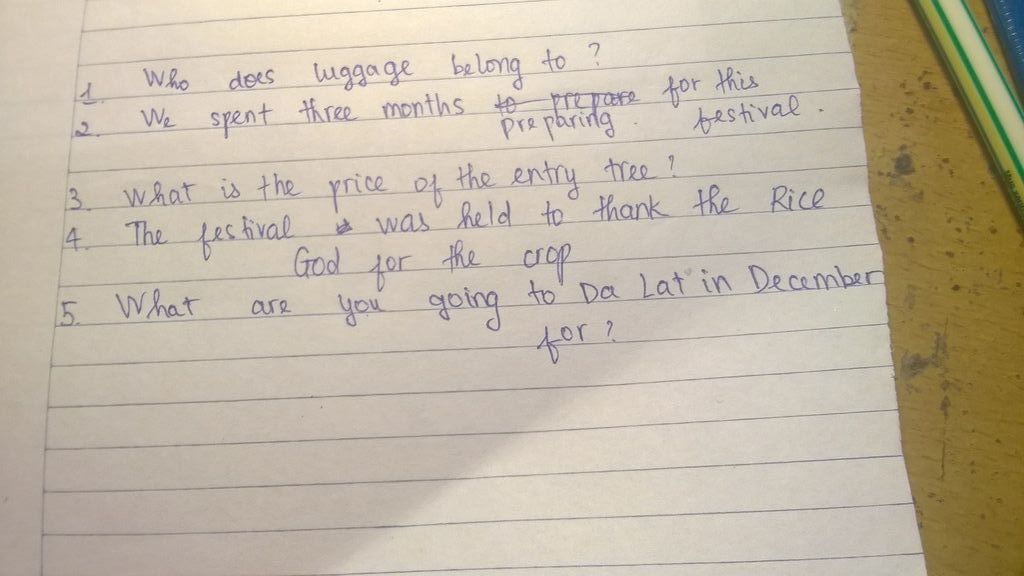 1. Who does luggage belong to ?
2. We spent three months to prepare for this
preparing. festival.
3. What is the price of the entry tree ?
4. The festival was held to thank the Rice
God for the crop
5. What are you going to Da Lat in December
for ?